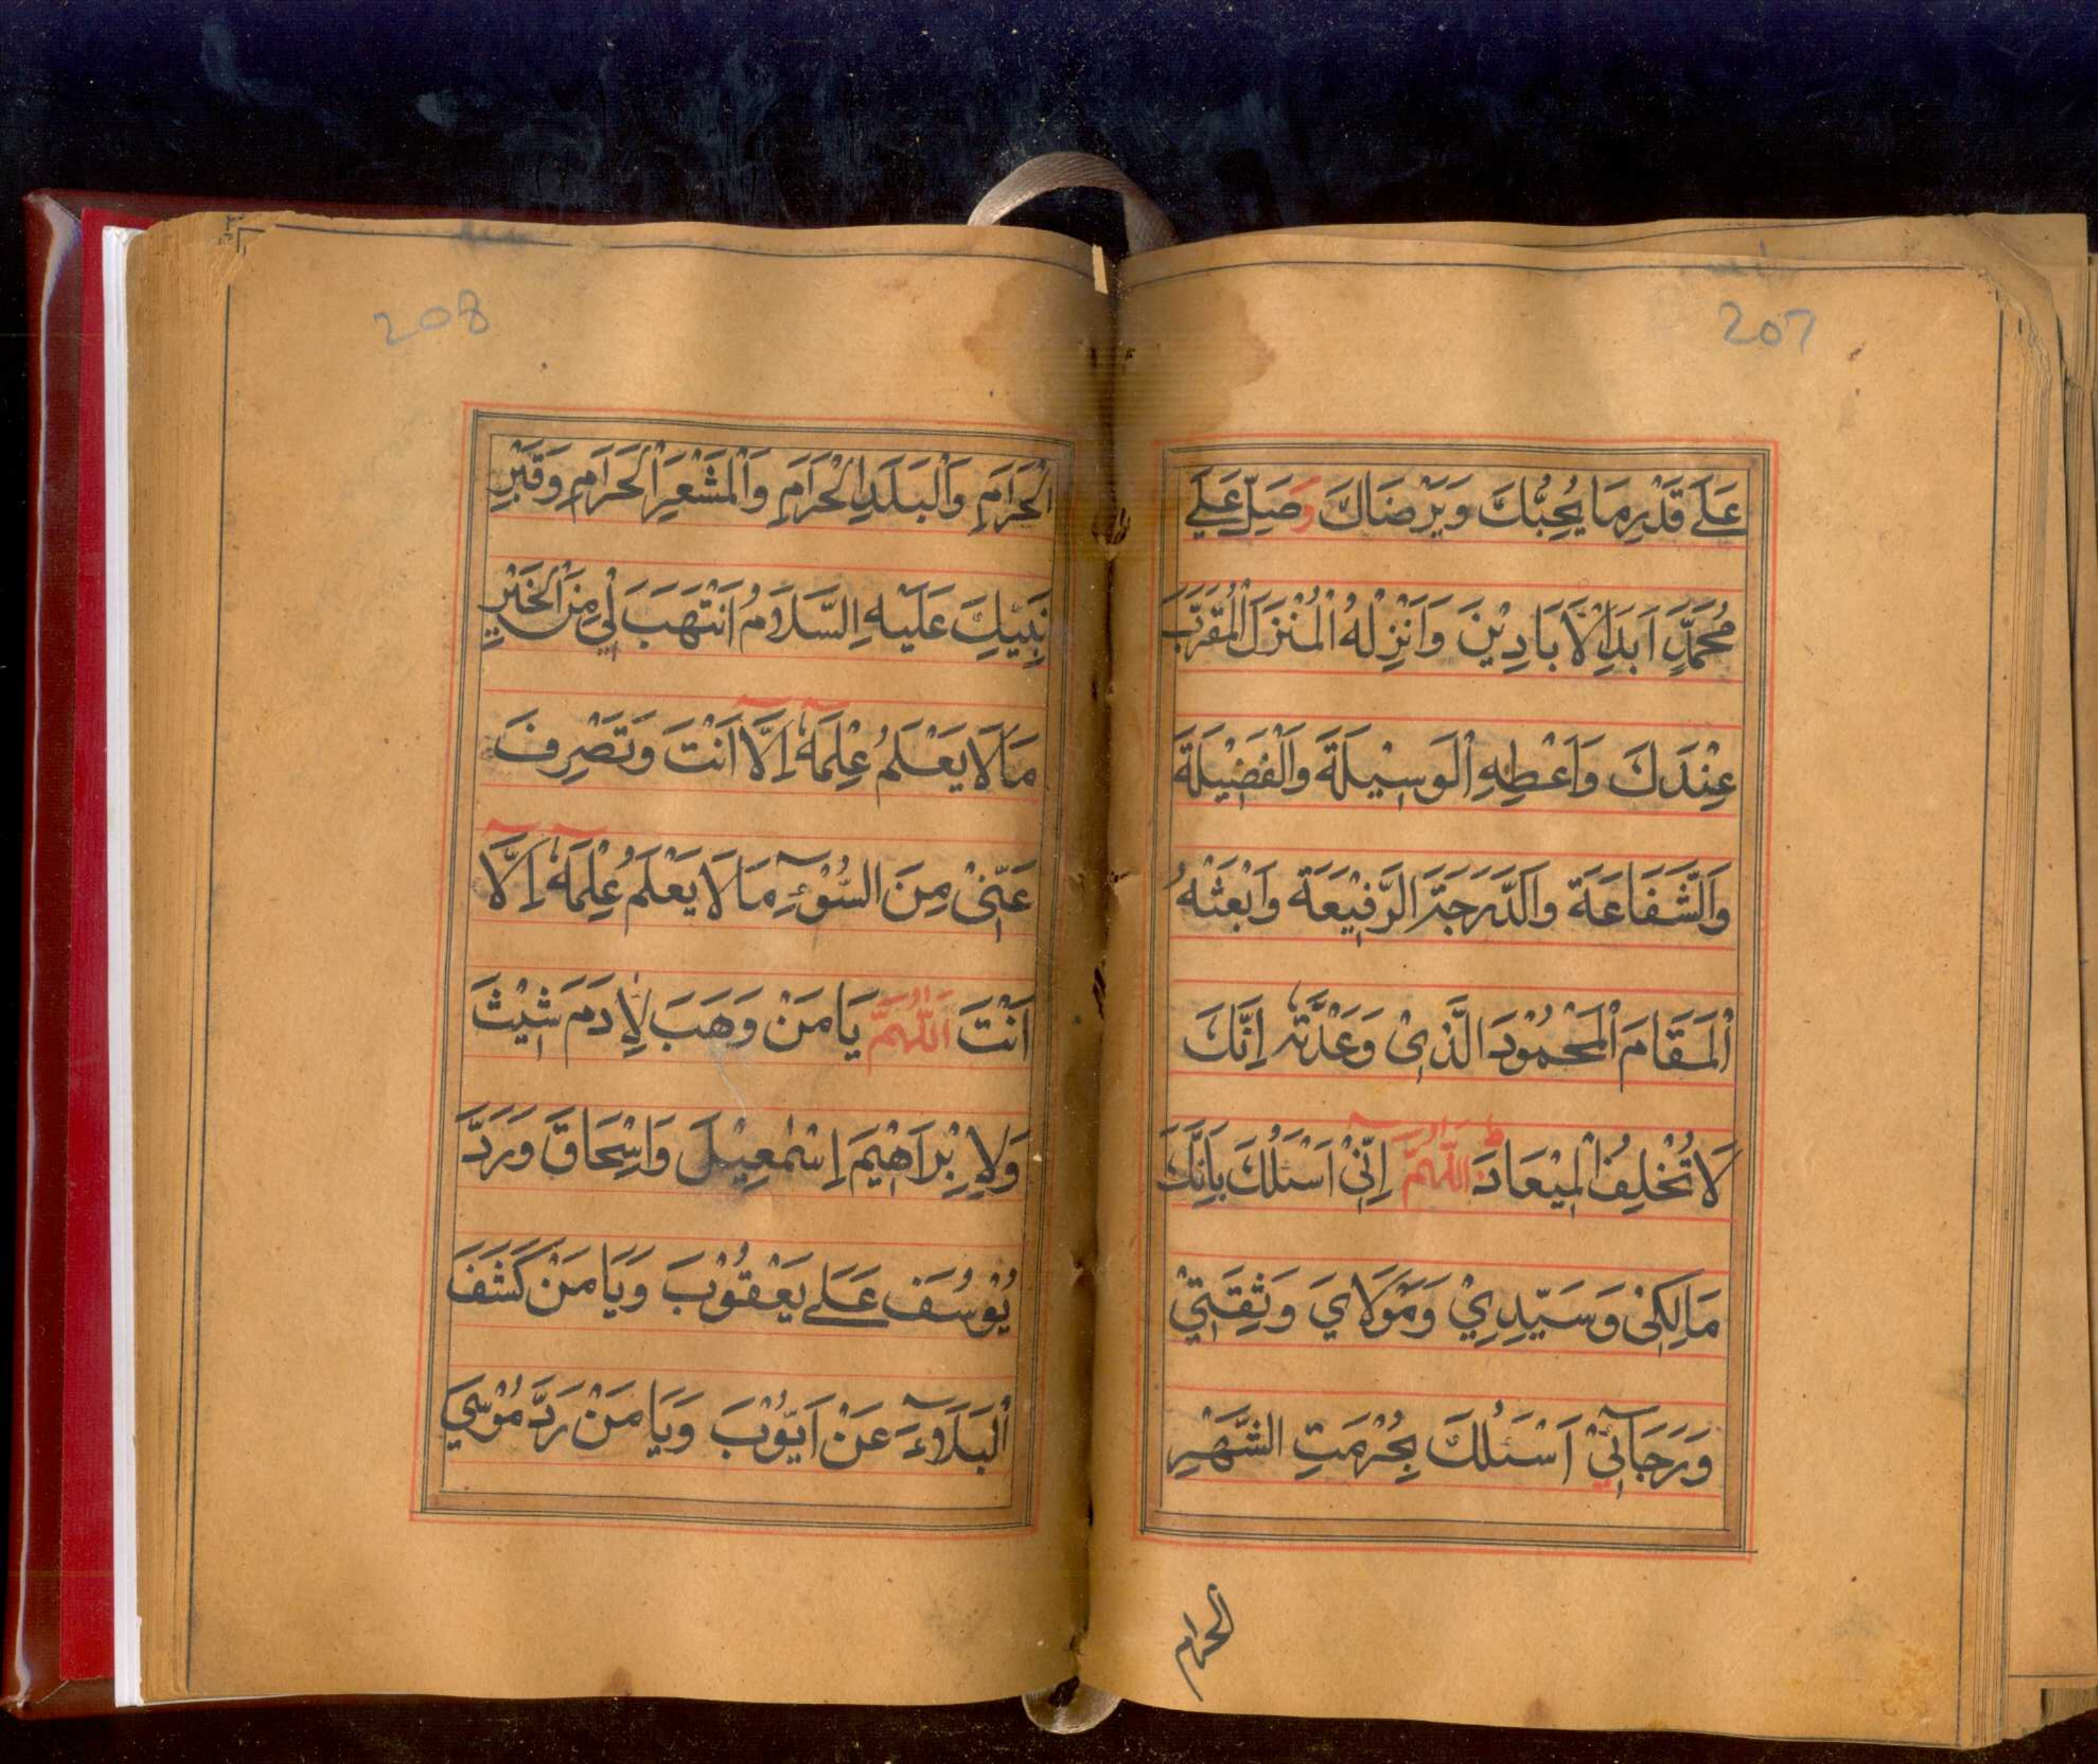 207
عَلَى قَدْرِ مَا يُحِبُّكَ وَيَرْضَاكَ وَصَلِّ عَلَى
مُحَمَّدٍ اَبَدَ الْاَبَادِيْنَ وَاَنْزِلْهُ الْمُنْزَلَ الْمُقَرَّبَ
عِنْدَكَ وَاَعْطِهِ الْوَسِيْلَةَ وَالْفَضِيْلَةَ
وَالشَّفَاعَةَ وَالدَّرَجَةَ الرَّفِيْعَةَ وَابْعَثْهُ
الْمَقَامَ الْمَحْمُوْدَ الَّذِىْ وَعَدْتَّهٗ اِنَّكَ
لَا تُخْلِفُ الْمِيْعَادَ ط اَللّٰهُمَّ اِنِّىْٓ اَسْئَلُكَ بِاَنَّكَ
مَالِكِىْ وَسَيِّدِيْ وَمَوْلَايَ وَثِقَتِيْ
وَرَجَآئِيْ اَسْئَلُكَ بِحُرْمَتِ الشَّهْرِ
الحرام
208
الْحَرَامِ وَالْبَلَدِ الْحَرَامِ وَالْمَشْعَرِ الْحَرَامِ وَقَبْرِ
نَبِيِّكَ عَلَيْهِ السَّلَامُ اَنْ تَهَبَ لِيْ مِنَ الْخَيْرِ
مَا لَا يَعْلَمُ عِلْمَهٗٓ اِلَّآ اَنْتَ وَتَصْرِفَ
عَنِّىْ مِنَ السُّوْٓءِ مَا لَا يَعْلَمُ عِلْمَهٗٓ اِلَّآ
اَنْتَ اَللّٰهُمَّ يَا مَنْ وَهَبَ لِاٰدَمَ شِيْثَ
وَلِاِبْرَاهِيْمَ اِسْمٰعِيْلَ وَاِسْحَاقَ وَرَدَّ
يُوْسُفَ عَلٰى يَعْقُوْبَ وَيَا مَنْ كَشَفَ
الْبَلَآءَ عَنْ اَيُّوْبَ وَيَا مَنْ رَدَّ مُوْسٰي